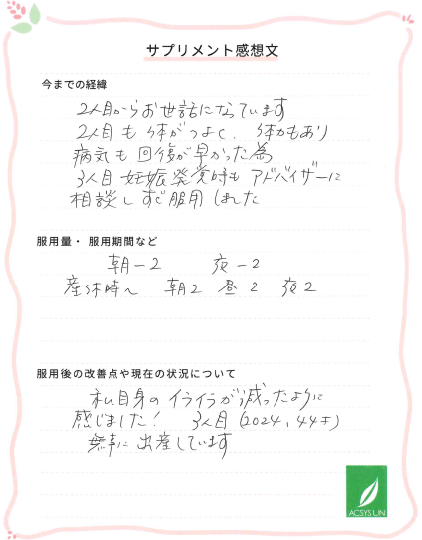 サプリメント感想文
今までの経緯
2人目からお世話になっています
2人目も体がつよく、体力もあり
病気も回復が早かった為
3人目妊娠発覚時もアドバイザーに
相談しすぐ服用しました
服用量・服用期間など
朝ー2 夜ー2
産休時〜 朝2 昼2 夜2
服用後の改善点や現在の状況について
私自身のイライラが減ったように
感じました! 3人目(2024、44才)
無事に出産しています
ACSYS LIN